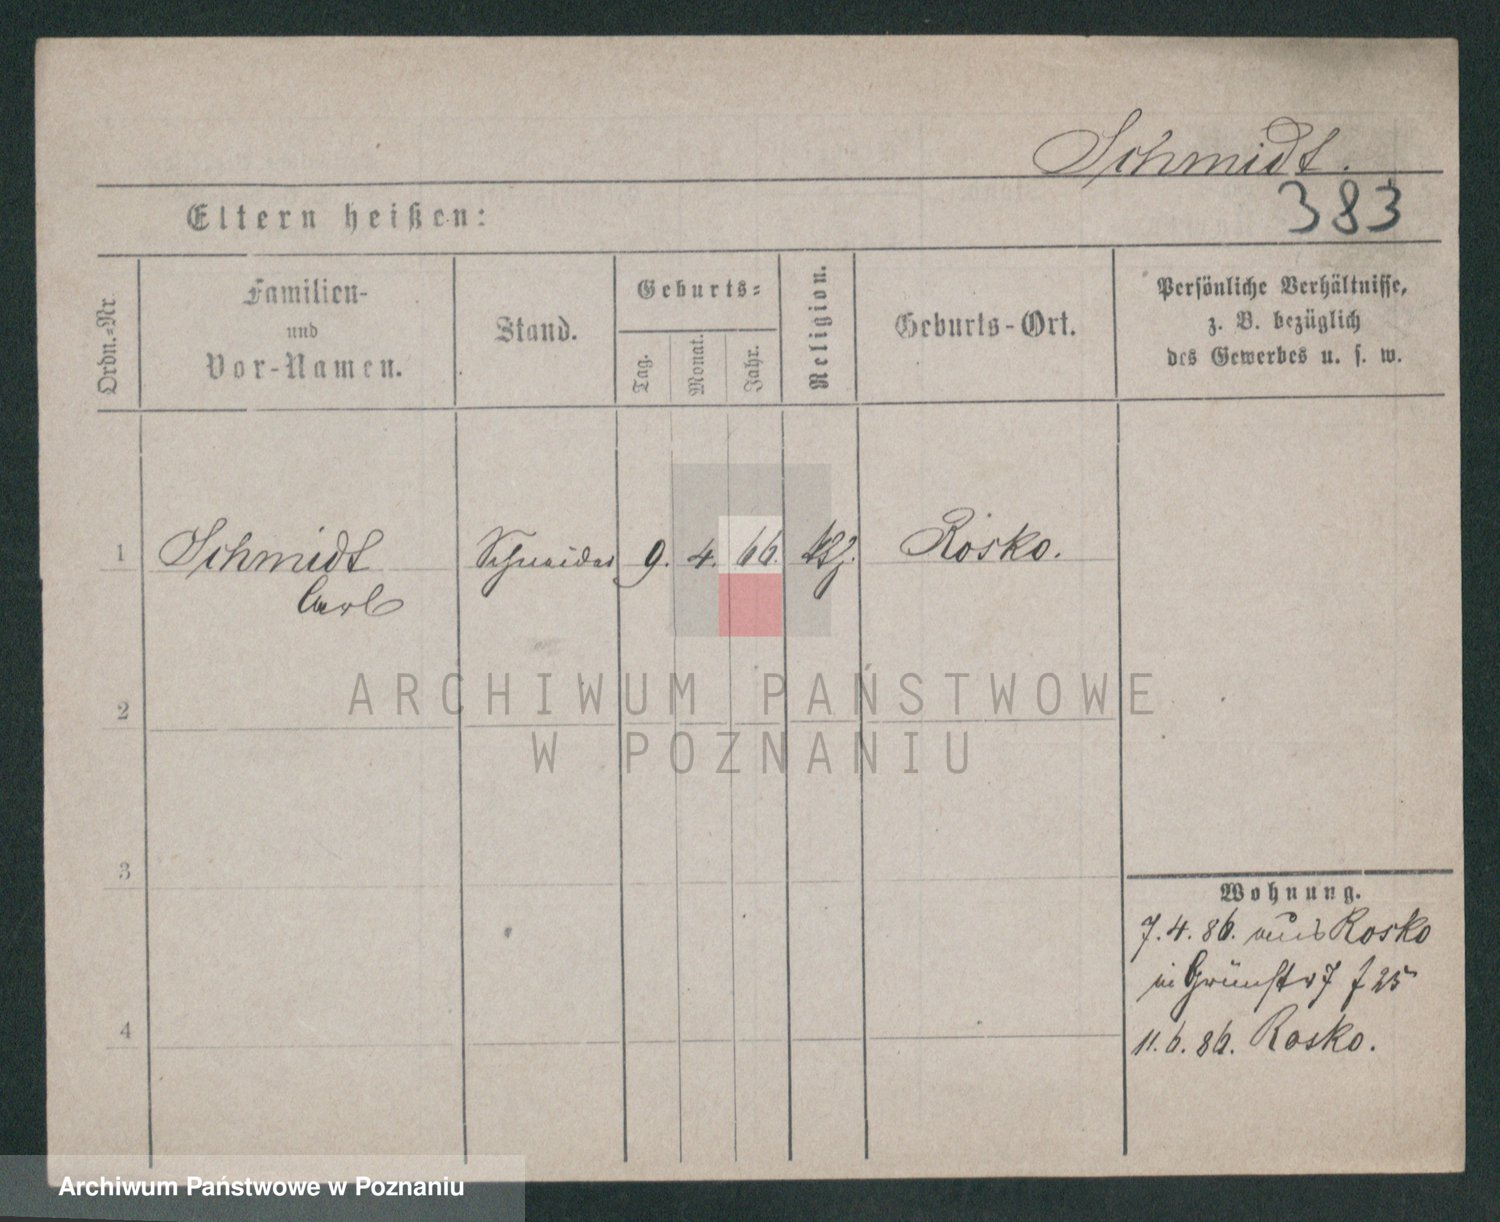 Schmidt.
383
Eltern heißen:
Ordn.-Nr.
Familien-
und
Vor-Namen.
Stand.
Geburts-
Tag.
Monat.
Jahr.
Religion.
Geburts-Ort.
Persönliche Verhältnisse,
z. B. bezüglich
des Gewerbes u. s. w.
1 Schmidt Schneider 9. 4. 66. Rosko.
Carl
2
3
4
Wohnung.
7. 4. 86. aus Rosko
in Grünstr 7 f 25
11. 6. 86. Rosko.
ARCHIWUM PAŃSTWOWE
W POZNANIU
Archiwum Państwowe w Poznaniu